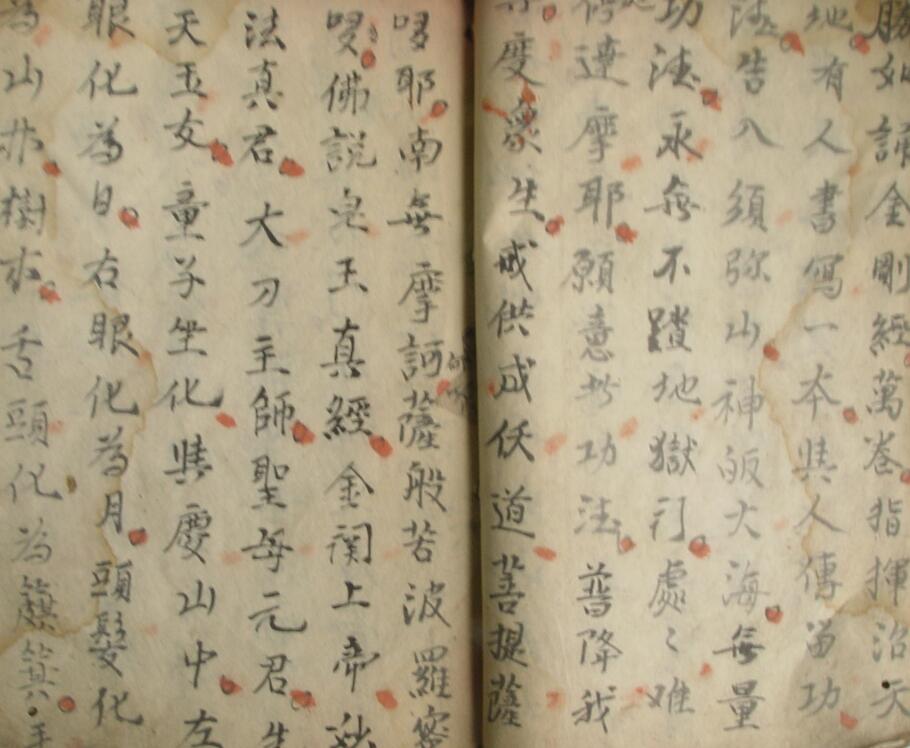 勝如誦金剛經萬卷指揮治天
地有人書寫一本與人傳留功
法告入須弥山神皈大海無量
功法永無不踏地獄行處〻難
達摩耶願意於功法普降我
度衆生戒供成伏道菩提薩
哆耶南無摩訶薩般若波羅密
哆佛說皇王真經金闕上帝妙
法真君大刀主師聖母元君生
天玉女童子坐化與慶山中左
眼化為日右眼化為月頭髮化
為山林樹木舌頭化為簱箕手